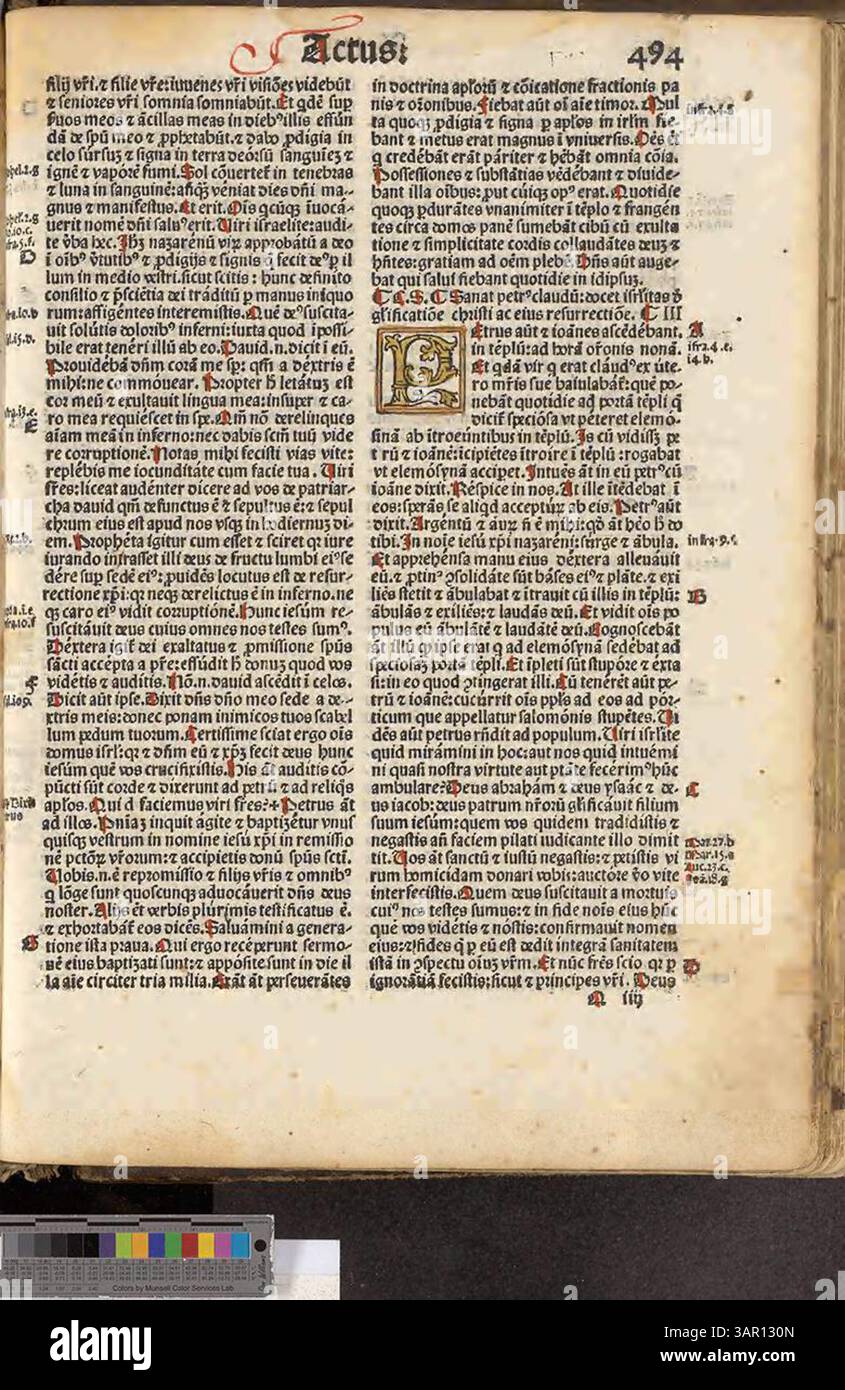 Actus:
494
filij vr̄i.⁊ filie vr̄e:iuuenes vr̄i visiōes videbūt
⁊ seniores vr̄i somnia somniabūt.Et qdē sup
suos meos ⁊ ācillas meas in dieb⁹ illis effun
dā de spū meo ⁊ ꝓphetabūt.⁊ dabo ꝓdigia in
celo sursuꝫ ⁊ signa in terra deorsū sanguinē ⁊
ignē ⁊ vaporē fumi.Sol cōuertet̄ in tenebras
⁊ luna in sanguinē:añqꝫ veniat dies dn̄i ma-
gnus ⁊ manifestus.Et erit.Ois qcūqꝫ īuocā-
uerit nomē dn̄i salu⁹ erit.Uiri israelite:audi-
te v̄ba hec.Ihꝫ nazarēnū virꝫ approbātū a deo
ī oib⁹ v̄tutib⁹ ⁊ ꝓdigijs ⁊ signis q̄ fecit de⁹ ꝑ il
lum in medio vestri.sicut scitis: hunc definito
consilio ⁊ p̄sciētia dei trāditū ꝑ manus iniquo
rum:affigētes interemistis.Quē de⁹ suscita-
uit solūtis dolorib⁹ inferni:iuxta quod īpossi-
bile erat tenēri illū ab eo.Dauid.n.dicit ī eū.
Prouidēbā dn̄m corā me sꝑ: qm̄ a dextris ē
mihi:ne commouear. Propter ħ letātuꝫ est
cor meū ⁊ exultauit lingua mea:insuper ⁊ ca-
ro mea requiescet in spe.Qm̄ nō derelinques
aīam meā in inferno:nec dabis scm̄ tuū vide
re corruptionē.Notas mihi fecisti vias vite:
replēbis me iocunditate cum facie tua. Uiri
fr̄es:liceat audenter dicere ad vos de patriar-
cha dauid qm̄ defunctus ē ⁊ sepultus ē:⁊ sepul
chrum eius est apud nos vsqꝫ in hodiernuꝫ di-
em.Prophēta igitur cum esset ⁊ sciret qꝛ iure
iurando iurasset illi deus de fructu lumbi ei⁹ se
dēre suꝑ sedē ei⁹:ꝓuidēs locutus est de resur-
rectione xp̄i:qꝛ neqꝫ derelictus ē in inferno.ne
qꝫ caro ei⁹ vidit corruptiōnē.Hunc iesūm re-
suscitāuit deus cuius omnes nos testes sum⁹.
Dextera igit̄ dei exaltatus ⁊ ꝓmissione spūs
sācti accēpta a pr̄e:effūdit ħ donuꝫ quod vos
vidētis ⁊ auditis. Nō.n.dauid ascēdit ī celos.
Dicit aūt ipse.Dixit dn̄s dn̄o meo sede a de-
xtris meis:donec ponam inimicos tuos scabel
lum pedum tuorum.Certissime sciat ergo ois
domus isrl:qꝛ ⁊ dn̄m eū ⁊ xp̄ꝫ fecit deus hunc
iesūm quē vos crucifixistis.His āt auditis cō-
pūcti sūt corde ⁊ dixerunt ad petrū ⁊ ad reliq̄s
apl̄os.Quid faciemus viri fr̄es?Petrus āt
ad illos.Pn̄iāꝫ inquit agite ⁊ baptizētur vnus
quisqꝫ vestrum in nomine iesū xp̄i in remissio
nē pctōꝝ vr̄orum:⁊ accipietis donū spūs scti.
Uobis.n.ē repromissio ⁊ filijs vr̄is ⁊ omnib⁹
q̄ lōge sunt quoscunqꝫ aduocāuerit dn̄s deus
noster.Alijs ēt verbis plurimis testificatus ē.
⁊ exhortabat̄ eos dicēs.Saluāmini a genera-
tione ista praua.Qui ergo recēperunt sermo-
nē eius baptizati sunt:⁊ appōsite sunt in die il
la aīe circiter tria milia.Erāt āt perseuerātes
in doctrina apl̄orū ⁊ cōicatione fractionis pa
nis ⁊ or̄onibus.Fiebat aūt oi aīe timor.Mul
ta quoqꝫ ꝓdigia ⁊ signa ꝑ apl̄os in irl̄m fie-
bant ⁊ metus erat magnus ī vniuersis.Oēs ēt
q̄ credēbāt erāt pāriter ⁊ hēbāt omnia cōia.
Possessiones ⁊ substātias vēdēbant ⁊ diuide-
bant illa oibus:ꝓut cuiqꝫ op⁹ erat.Quotidie
quoqꝫ ꝑdurātes vnanimiter ī tēplo ⁊ frangēn
tes circa domos panē sumebāt cibū cū exulta
tione ⁊ simplicitate cordis collaudātes deuꝫ ⁊
hn̄tes:gratiam ad oēm plebē. Dn̄s aūt auge-
bat qui salui fiebant quotidie in idipsuꝫ.
C C.S.C Sanat petr⁹ claudū:docet isrl̄itas d̄
gl̄ificatiōe christi ac eius resurrectiōe. C III
PEtrus aūt ⁊ ioānes ascēdēbant.
in tēplū:ad horā or̄onis nonā.
Et qdā vir q̄ erat claud⁹ ex úte-
ro mr̄is sue baiulabat̄:quē po-
nebāt quotidie ad portā tēpli q̄
dicit̄ speciōsa vt pēteret elemo-
sinā ab ītroeūntibus in tēplū.Is cū vidiss̄ꝫ pe
trū ⁊ ioānē:īcipiētes ītroire ī tēplū :rogabat
vt elemōsynā accipet.Intuēs āt in eū petr⁹ cū
ioāne dixit.Rēspice in nos.At ille ītēdebat ī
eos:sperās se aliqd acceptūꝝ ab eis.Petr⁹ aūt
dixit.Argentū ⁊ auꝝ n̄ ē mihi:qđ āt hēo ħ do
tibi.In noīe iesū xp̄i nazarēni:sūrge ⁊ ābula.
Et apprehēnsa manu eius dēxtera alleuāuit
eū.⁊ ꝓtin⁹ ꝯsolidāte sūt bāses ei⁹ ⁊ plāte.⁊ exi
liēs stetit ⁊ ābulabat ⁊ ītrauit cū illis in tēplū:
ābulās ⁊ exiliēs:⁊ laudās deū.Et vidit ois po
pulus eū ābulātē ⁊ laudātē deū.Cognoscebāt
āt illū qꝛ ipse erat q̄ ad elemōsynā sedēbat ad
speciosaꝫ portā tēpli.Et īpleti sūt stupōre ⁊ exta
si:in eo quod ꝯtingerat illi.Cū tenērēt aūt pe-
trū ⁊ ioānē:cucūrrit ois ppl̄s ad eos ad pōr-
ticum que appellatur salomōnis stupētes.Ui
dēs aūt petrus rn̄dit ad populum.Uiri isrl̄ite
quid mirāmini in hoc:aut nos quid intuēmi
ni quasi nostra virtute aut ptāte fecērim⁹ hūc
ambulare?Deus abrahām ⁊ deus ysaāc ⁊ de-
us iacob:deus patrum nr̄orū gl̄ificāuit filium
suum iesūm:quem vos quidem tradidistis ⁊
negastis an̄ faciem pilati iudicante illo dimit
tit.Uos āt sanctū ⁊ iustū negastis:⁊ petistis vi
rum homicidam donari vobis:auctōrē v̄o vite
interfecistis.Quem deus suscitauit a mortuis
cui⁹ nos testes sumus:⁊ in fide noīs eius hūc
quē vos vidētis ⁊ nōstis:confirmauit nomen
eius:⁊ fides q̄ ꝑ eū est dedit integrā sanitatem
istā in ꝯspectu oīuꝫ vr̄m.Et nūc fr̄es scio qꝛ ꝑ
ignorātiā fecistis:sicut ⁊ principes vr̄i.Deus
N iiij
A
ifra.4.e.
14.b.
B
C
Mat.27.b
Mar.15.g
Luc.23.c.
Joā.18.g
D
alamy
Image ID: 3AR130N
www.alamy.com